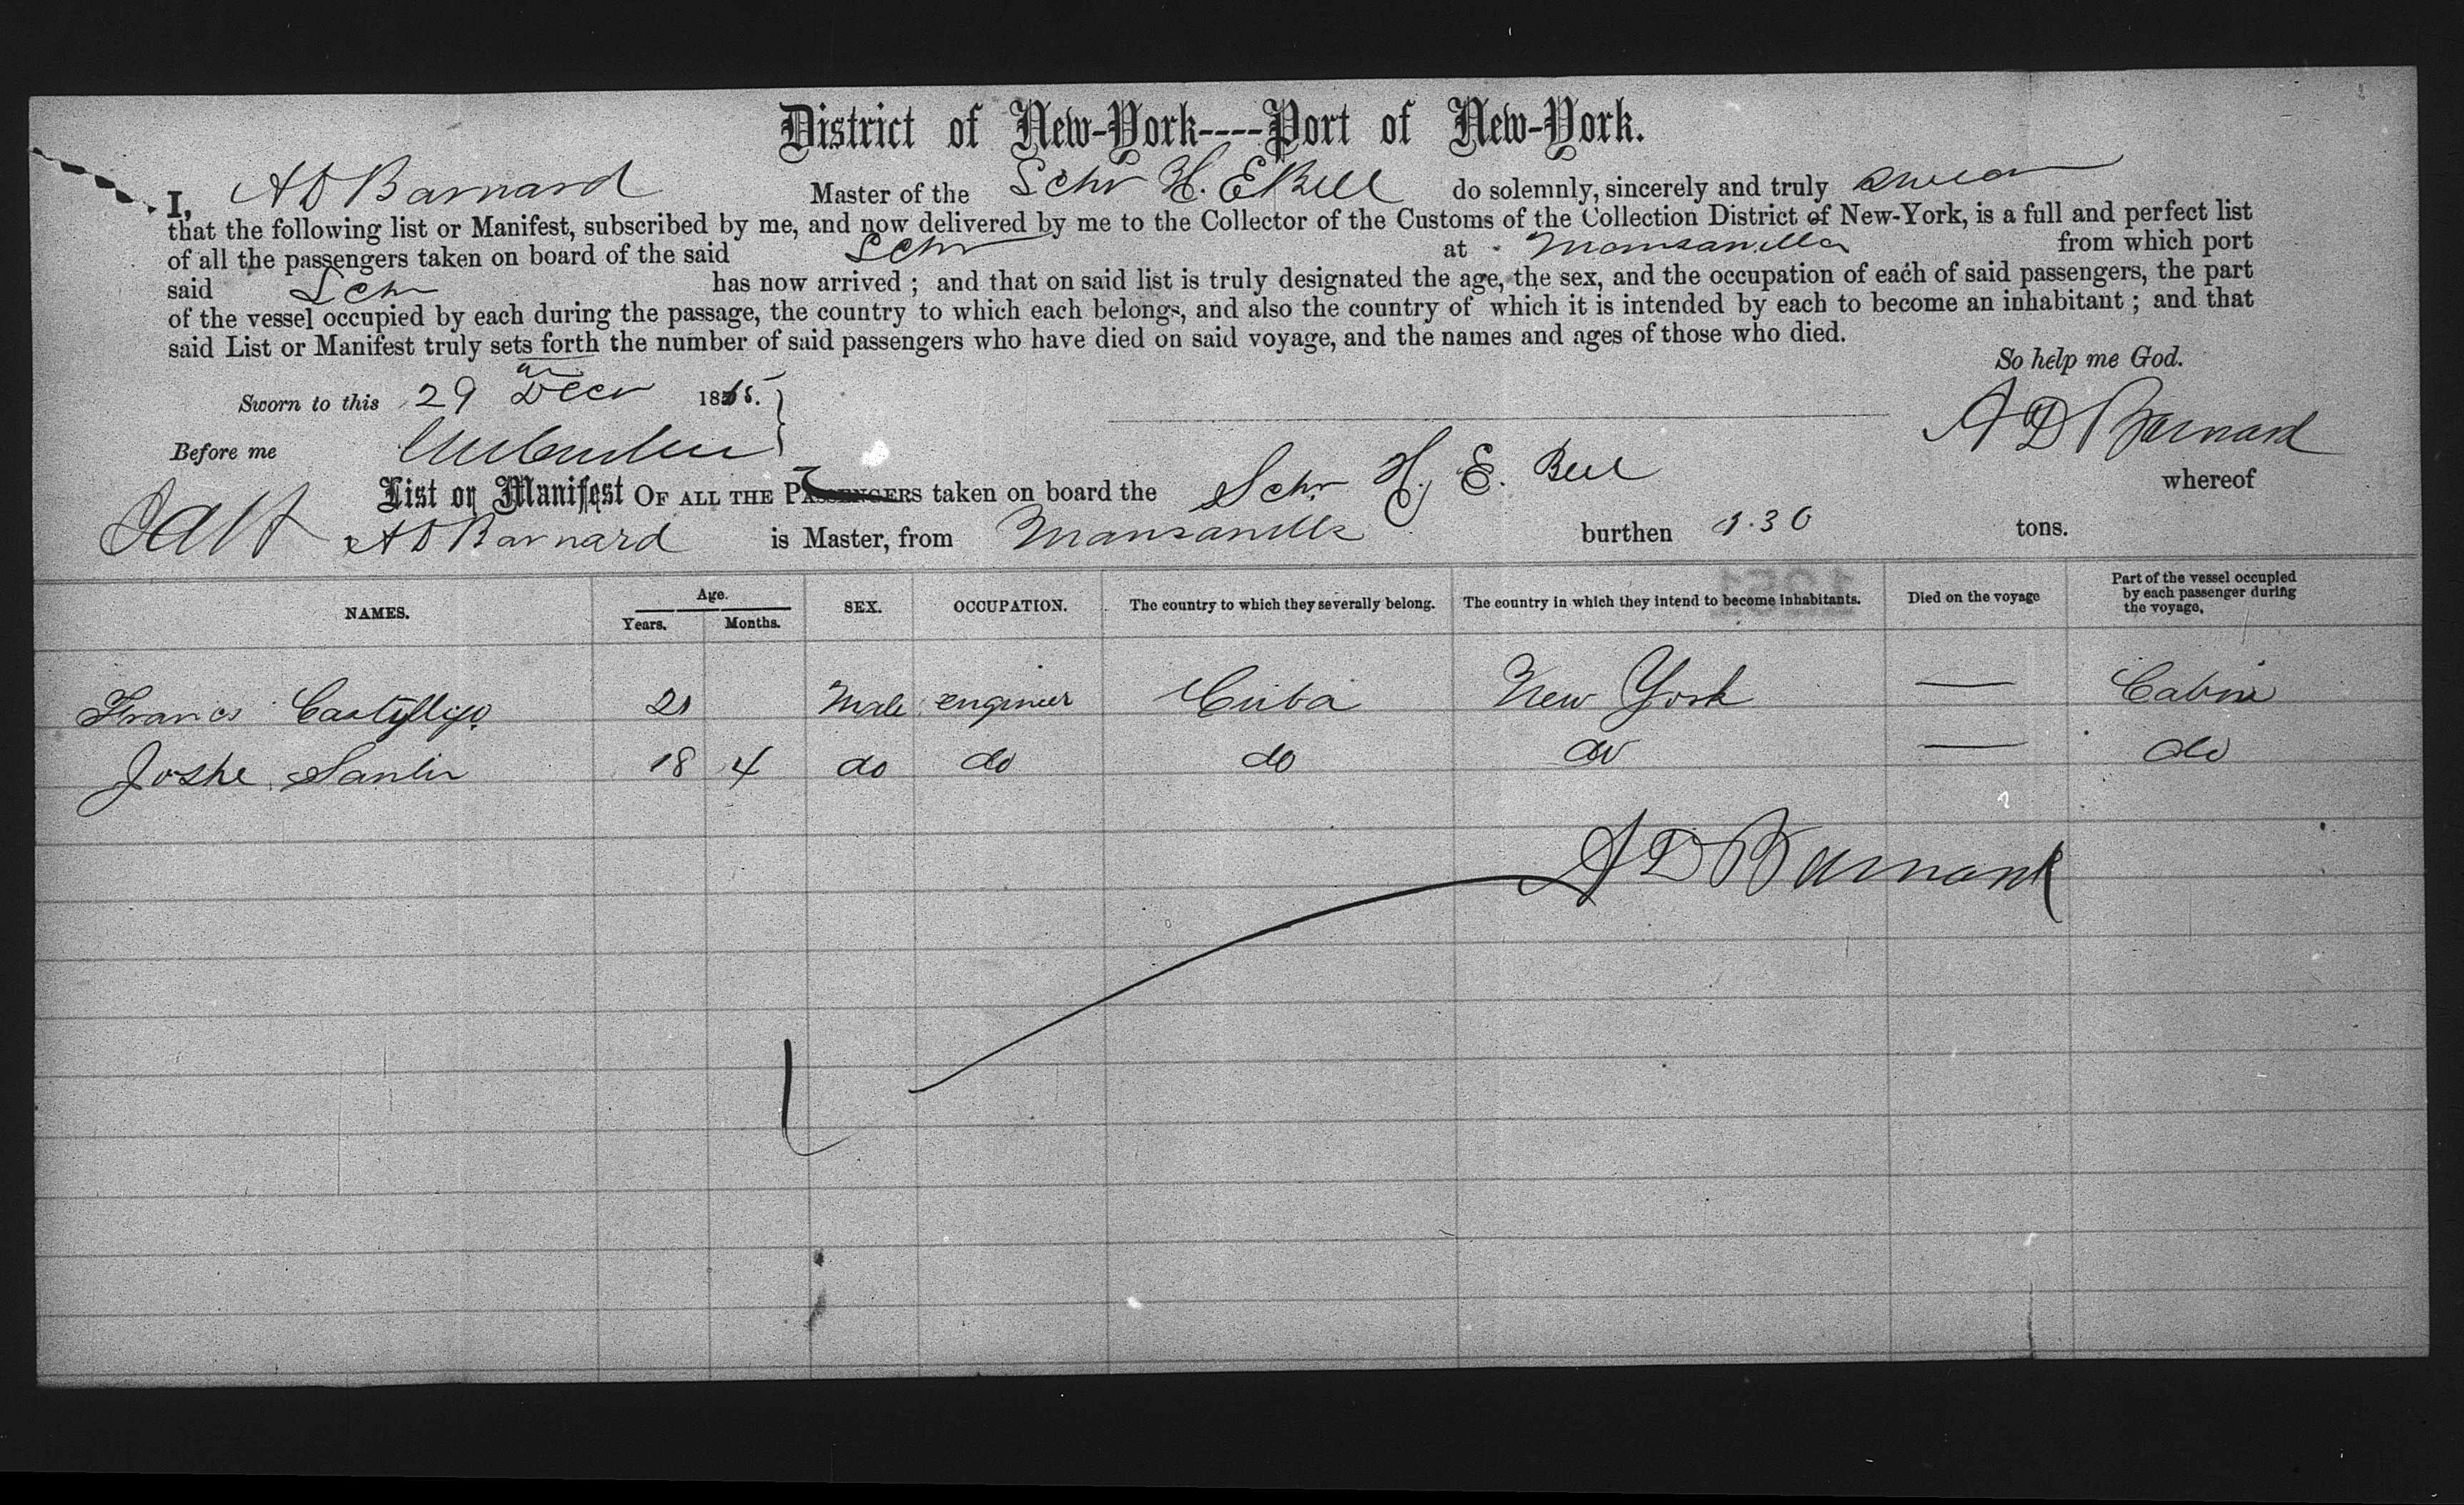 District of New-York----Port of New-York.
I, A D Barnard Master of the Schr H. E Bell do solemnly, sincerely and truly swear
that the following list or Manifest, subscribed by me, and now delivered by me to the Collector of the Customs of the Collection District of New-York, is a full and perfect list
of all the passengers taken on board of the said Schr at Mansanilla from which port
said Schr has now arrived ; and that on said list is truly designated the age, the sex, and the occupation of each of said passengers, the part
of the vessel occupied by each during the passage, the country to which each belongs, and also the country of which it is intended by each to become an inhabitant ; and that
said List or Manifest truly sets forth the number of said passengers who have died on said voyage, and the names and ages of those who died.
So help me God.
Sworn to this 29 Decr 1865.
A D Barnard
Before me
List or Manifest OF ALL THE PASSENGERS taken on board the Schr H. E. Bell whereof
A D Barnard is Master, from Mansanilla burthen 130 tons.
NAMES. Age. Years. Months. SEX. OCCUPATION. The country to which they severally belong. The country in which they intend to become inhabitants. Died on the voyage Part of the vessel occupied by each passenger during the voyage.
Francis Castyllyo 21 Male engineer Cuba New York — Cabin
Joshe Sanlin 18 4 do do do do — do
A D Barnard